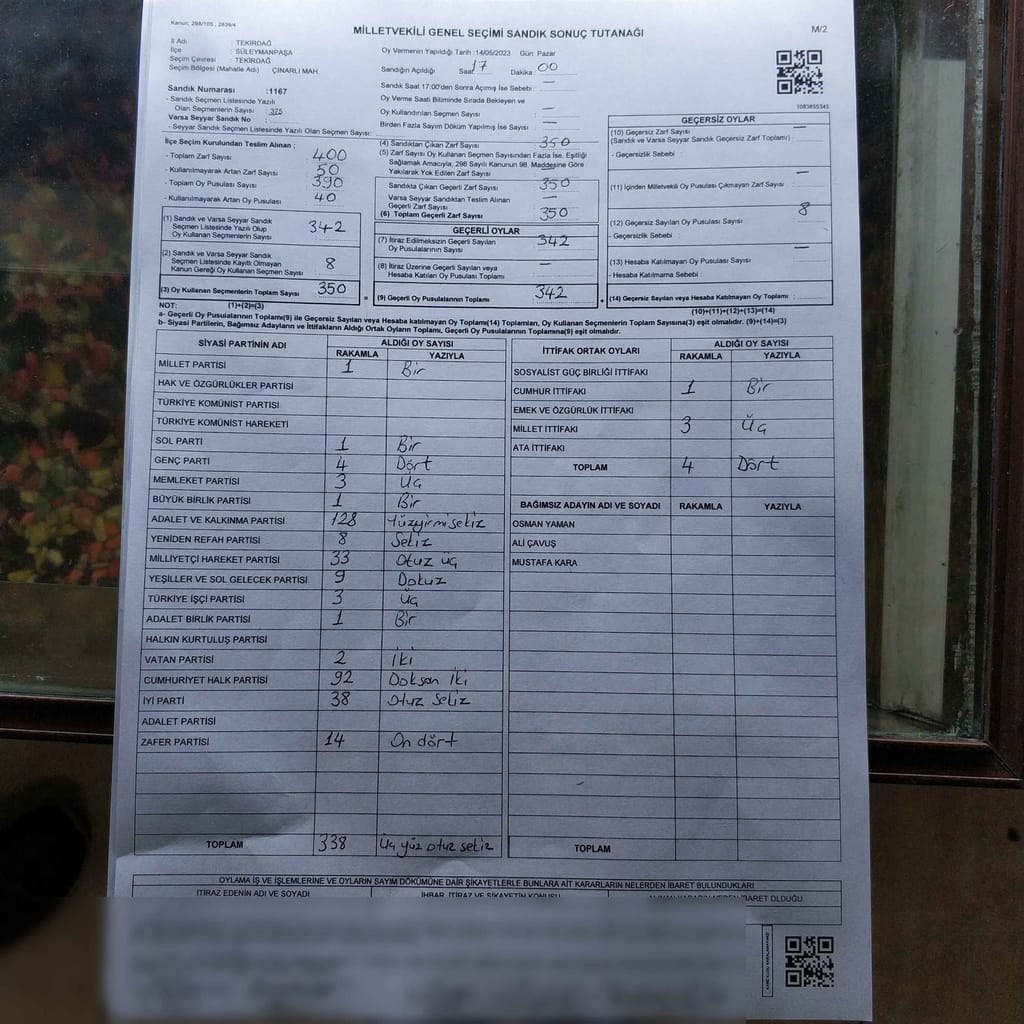 Kanun; 298/105 , 2839/4
MİLLETVEKİLİ GENEL SEÇİMİ SANDIK SONUÇ TUTANAĞI
M/2
İl Adı : TEKİRDAĞ
İlçe : SÜLEYMANPAŞA
Seçim Çevresi : TEKİRDAĞ
Seçim Bölgesi (Mahalle Adı) ÇINARLI MAH.
Sandık Numarası :1167
- Sandık Seçmen Listesinde Yazılı
Olan Seçmenlerin Sayısı : 375
Varsa Seyyar Sandık No :
- Seyyar Sandık Seçmen Listesinde Yazılı Olan Seçmen Sayısı:
Oy Vermenin Yapıldığı Tarih :14/05/2023 Gün: Pazar
Sandığın Açıldığı Saat 17 Dakika : 00
Sandık Saat 17:00'den Sonra Açımış İse Sebebi : —
Oy Verme Saati Bitiminde Sırada Bekleyen ve
Oy Kullandırılan Seçmen Sayısı : —
Birden Fazla Sayım Döküm Yapılmış İse Sayısı : —
1083855345
İlçe Seçim Kurulundan Teslim Alınan ;
- Toplam Zarf Sayısı : 400
- Kullanılmayarak Artan Zarf Sayısı : 50
- Toplam Oy Pusulası Sayısı : 390
- Kullanılmayarak Artan Oy Pusulası : 40
(1) Sandık ve Varsa Seyyar Sandık
Seçmen Listesinde Yazılı Olup
Oy Kullanan Seçmenlerin Sayısı : 342
(2) Sandık ve Varsa Seyyar Sandık
Seçmen Listesinde Kayıtlı Olmayan
Kanun Gereği Oy Kullanan Seçmen Sayısı : 8
(3) Oy Kullanan Seçmenlerin Toplam Sayısı : 350
(1)+(2)=(3)
(4) Sandıktan Çıkan Zarf Sayısı : 350
(5) Zarf Sayısı Oy Kullanan Seçmen Sayısından Fazla İse, Eşitliği
Sağlamak Amacıyla; 298 Sayılı Kanunun 98. Maddesine Göre
Yakılarak Yok Edilen Zarf Sayısı :
Sandıkta Çıkan Geçerli Zarf Sayısı : 350
Varsa Seyyar Sandıktan Teslim Alınan
Geçerli Zarf Sayısı : —
(6) Toplam Geçerli Zarf Sayısı : 350
GEÇERLİ OYLAR
(7) İtiraz Edilmeksizin Geçerli Sayılan
Oy Pusulalarının Sayısı : 342
(8) İtiraz Üzerine Geçerli Sayılan veya
Hesaba Katılan Oy Pusulası Toplamı : —
= (9) Geçerli Oy Pusulalarının Toplamı : 342
GEÇERSİZ OYLAR
(10) Geçersiz Zarf Sayısı : —
(Sandık ve Varsa Seyyar Sandık Geçersiz Zarf Toplamı)
- Geçersizlik Sebebi :
(11) İçinden Milletvekili Oy Pusulası Çıkmayan Zarf Sayısı : —
(12) Geçersiz Sayılan Oy Pusulası Sayısı : 8
- Geçersizlik Sebebi :
(13) Hesaba Katılmayan Oy Pusulası Sayısı : —
- Hesaba Katılmama Sebebi :
+ (14) Geçersiz Sayılan veya Hesaba Katılmayan Oy Toplamı :
(10)+(11)+(12)+(13)=(14)
NOT:
a- Geçerli Oy Pusulalarının Toplamı(9) ile Geçersiz Sayılan veya Hesaba katılmayan Oy Toplamı(14) Toplamları, Oy Kullanan Seçmenlerin Toplam Sayısına(3) eşit olmalıdır. (9)+(14)=(3)
b- Siyasi Partilerin, Bağımsız Adayların ve İttifakların Aldığı Ortak Oyların Toplamı, Geçerli Oy Pusulalarının Toplamına(9) eşit olmalıdır.
SİYASİ PARTİNİN ADI ALDIĞI OY SAYISI
RAKAMLA YAZIYLA
MİLLET PARTİSİ 1 Bir
HAK VE ÖZGÜRLÜKLER PARTİSİ
TÜRKİYE KOMÜNİST PARTİSİ
TÜRKİYE KOMÜNİST HAREKETİ
SOL PARTİ 1 Bir
GENÇ PARTİ 4 Dört
MEMLEKET PARTİSİ 3 Üç
BÜYÜK BİRLİK PARTİSİ 1 Bir
ADALET VE KALKINMA PARTİSİ 128 Yüzyirmisekiz
YENİDEN REFAH PARTİSİ 8 Sekiz
MİLLİYETÇİ HAREKET PARTİSİ 33 Otuz üç
YEŞİLLER VE SOL GELECEK PARTİSİ 9 Dokuz
TÜRKİYE İŞÇİ PARTİSİ 3 Üç
ADALET BİRLİK PARTİSİ 1 Bir
HALKIN KURTULUŞ PARTİSİ
VATAN PARTİSİ 2 İki
CUMHURİYET HALK PARTİSİ 92 Doksan iki
İYİ PARTİ 38 Otuz Sekiz
ADALET PARTİSİ
ZAFER PARTİSİ 14 On dört
TOPLAM 338 Üç yüz otuz sekiz
İTTİFAK ORTAK OYLARI ALDIĞI OY SAYISI
RAKAMLA YAZIYLA
SOSYALİST GÜÇ BİRLİĞİ İTTİFAKI
CUMHUR İTTİFAKI 1 Bir
EMEK VE ÖZGÜRLÜK İTTİFAKI
MİLLET İTTİFAKI 3 Üç
ATA İTTİFAKI
TOPLAM 4 Dört
BAĞIMSIZ ADAYIN ADI VE SOYADI RAKAMLA YAZIYLA
OSMAN YAMAN
ALİ ÇAVUŞ
MUSTAFA KARA
TOPLAM
OYLAMA İŞ VE İŞLEMLERİNE VE OYLARIN SAYIM DÖKÜMÜNE DAİR ŞİKAYETLERLE BUNLARA AİT KARARLARIN NELERDEN İBARET BULUNDUKLARI
İTİRAZ EDENİN ADI VE SOYADI İHBAR, İTİRAZ VE ŞİKAYETİN KONUSU OLDUĞU